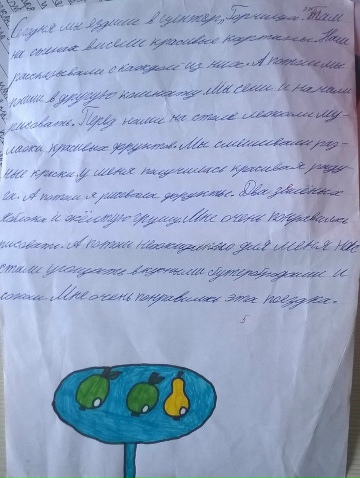 Сегодня мы ездили в центр „Горница". Там
на стенах висели красивые картины. Нам
рассказывали о каждой из них. А потом мы
пошли в другую комнату. Мы сели и начали
рисовать. Перед нами на столе лежали му-
ляжи красивых фруктов. Мы смешивали раз-
ные краски у меня получилась красивая раду-
га. А потом я рисовала фрукты. Два зелёных
яблока и жёлтую грушу. Мне очень понравилось
рисовать. А потом неожиданно для меня нас
стали угощать вкусными бутербродами и
соком. Мне очень понравилась эта поездка.
5